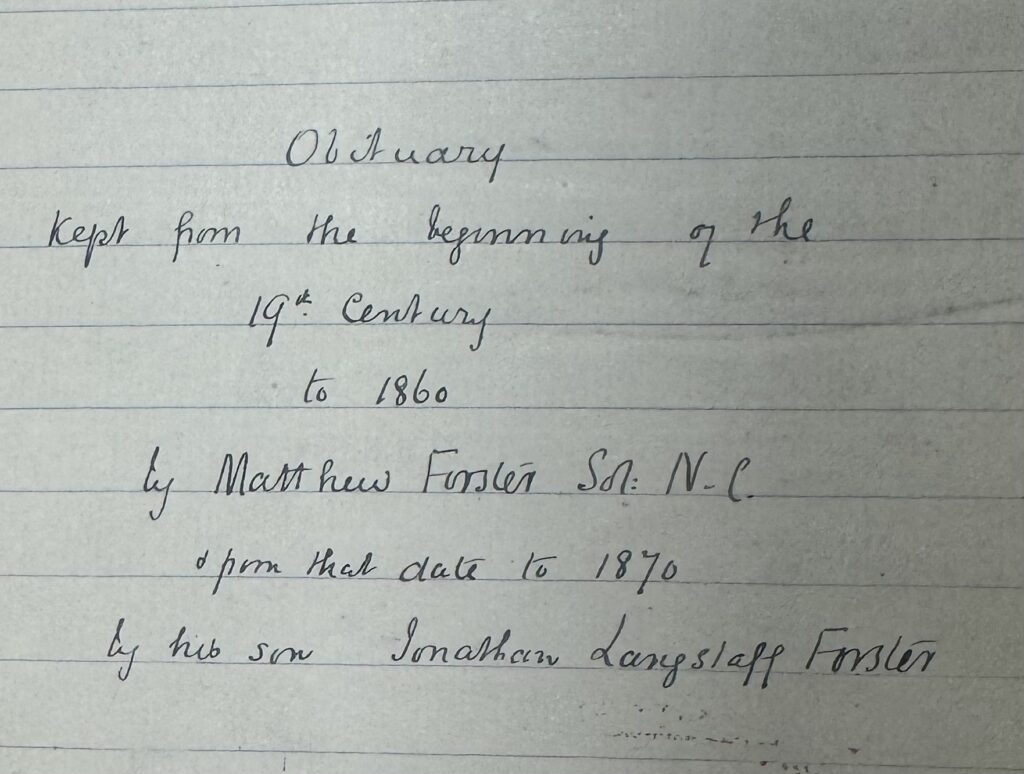 Obituary
Kept from the beginning of the
19th. Century
to 1860
by Matthew Forster Sol: N. C.
& from that date to 1870
by his son Jonathan Langstaff Forster